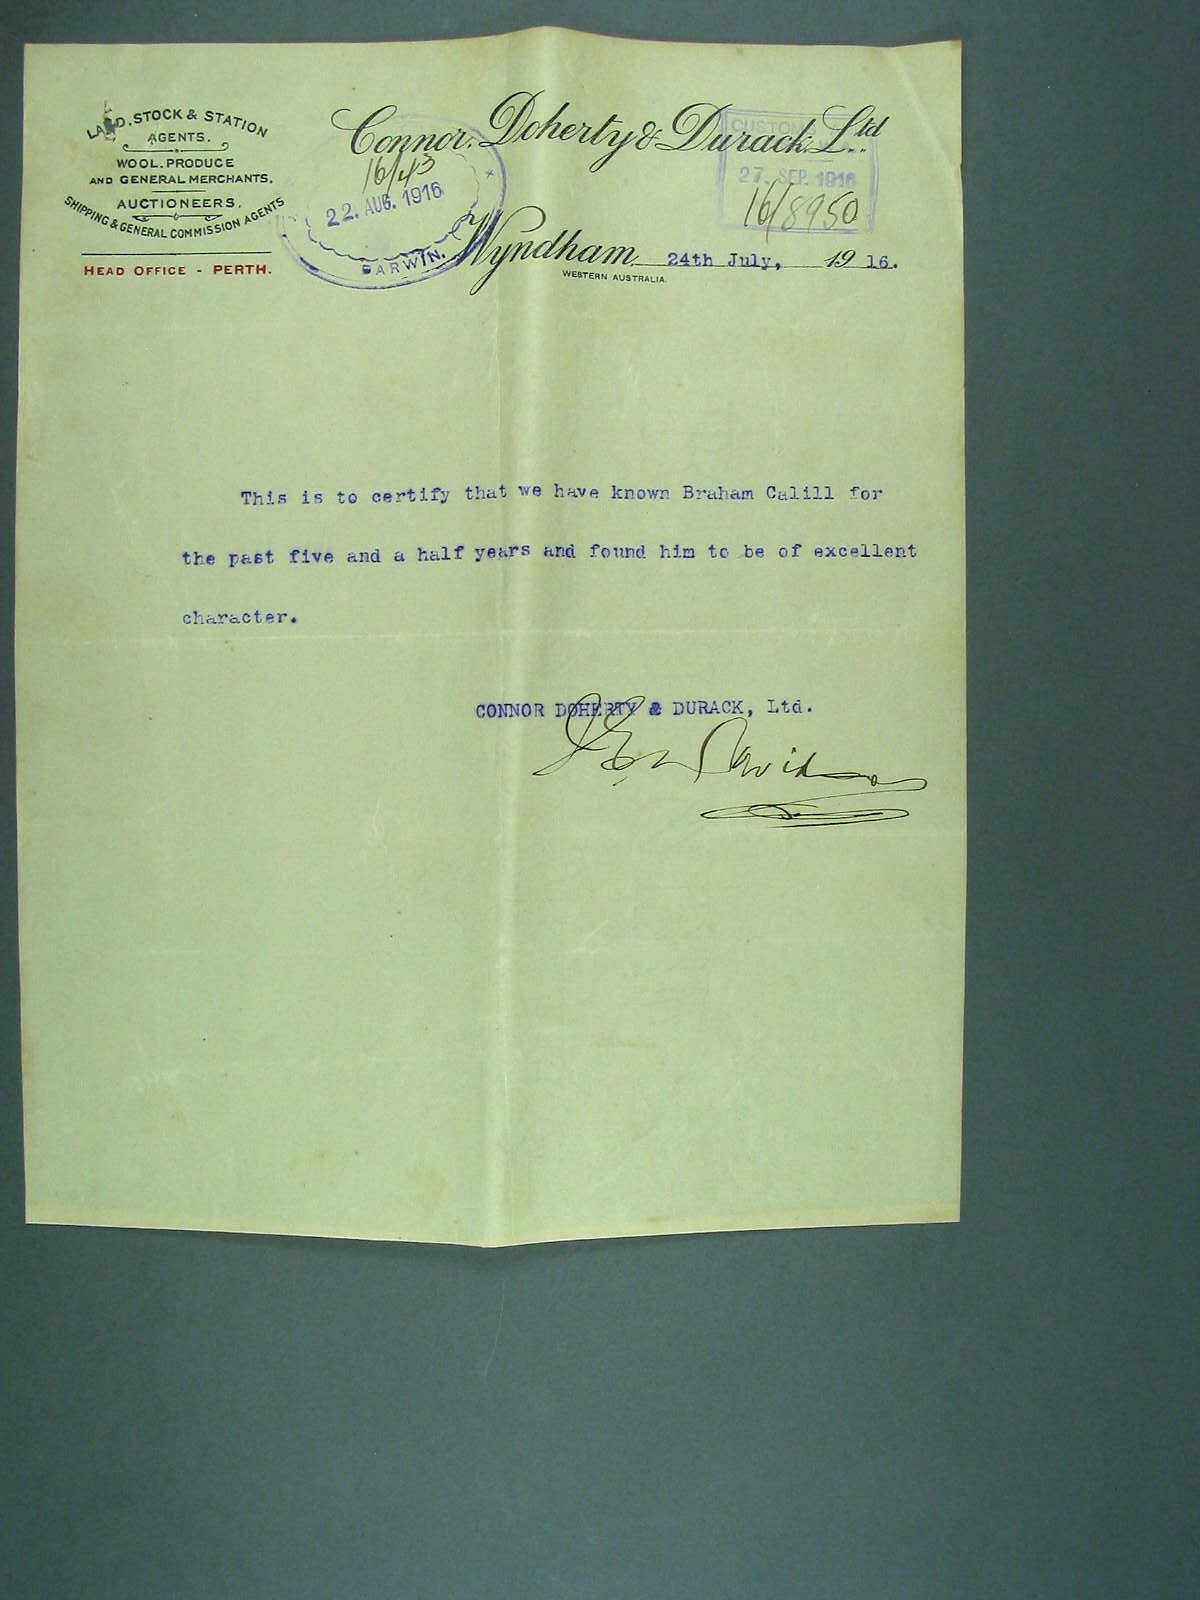 LAND. STOCK & STATION
AGENTS.
WOOL. PRODUCE
AND GENERAL MERCHANTS.
AUCTIONEERS.
SHIPPING & GENERAL COMMISSION AGENTS
HEAD OFFICE - PERTH.
Connor, Doherty & Durack Ltd.
16/43
22. AUG. 1916
DARWIN.
CUSTOMS
27. SEP. 1916
16/8950
Wyndham 24th July, 19 16.
WESTERN AUSTRALIA.
This is to certify that we have known Braham Calill for
the past five and a half years and found him to be of excellent
character.
CONNOR DOHERTY & DURACK, Ltd.
Davidson